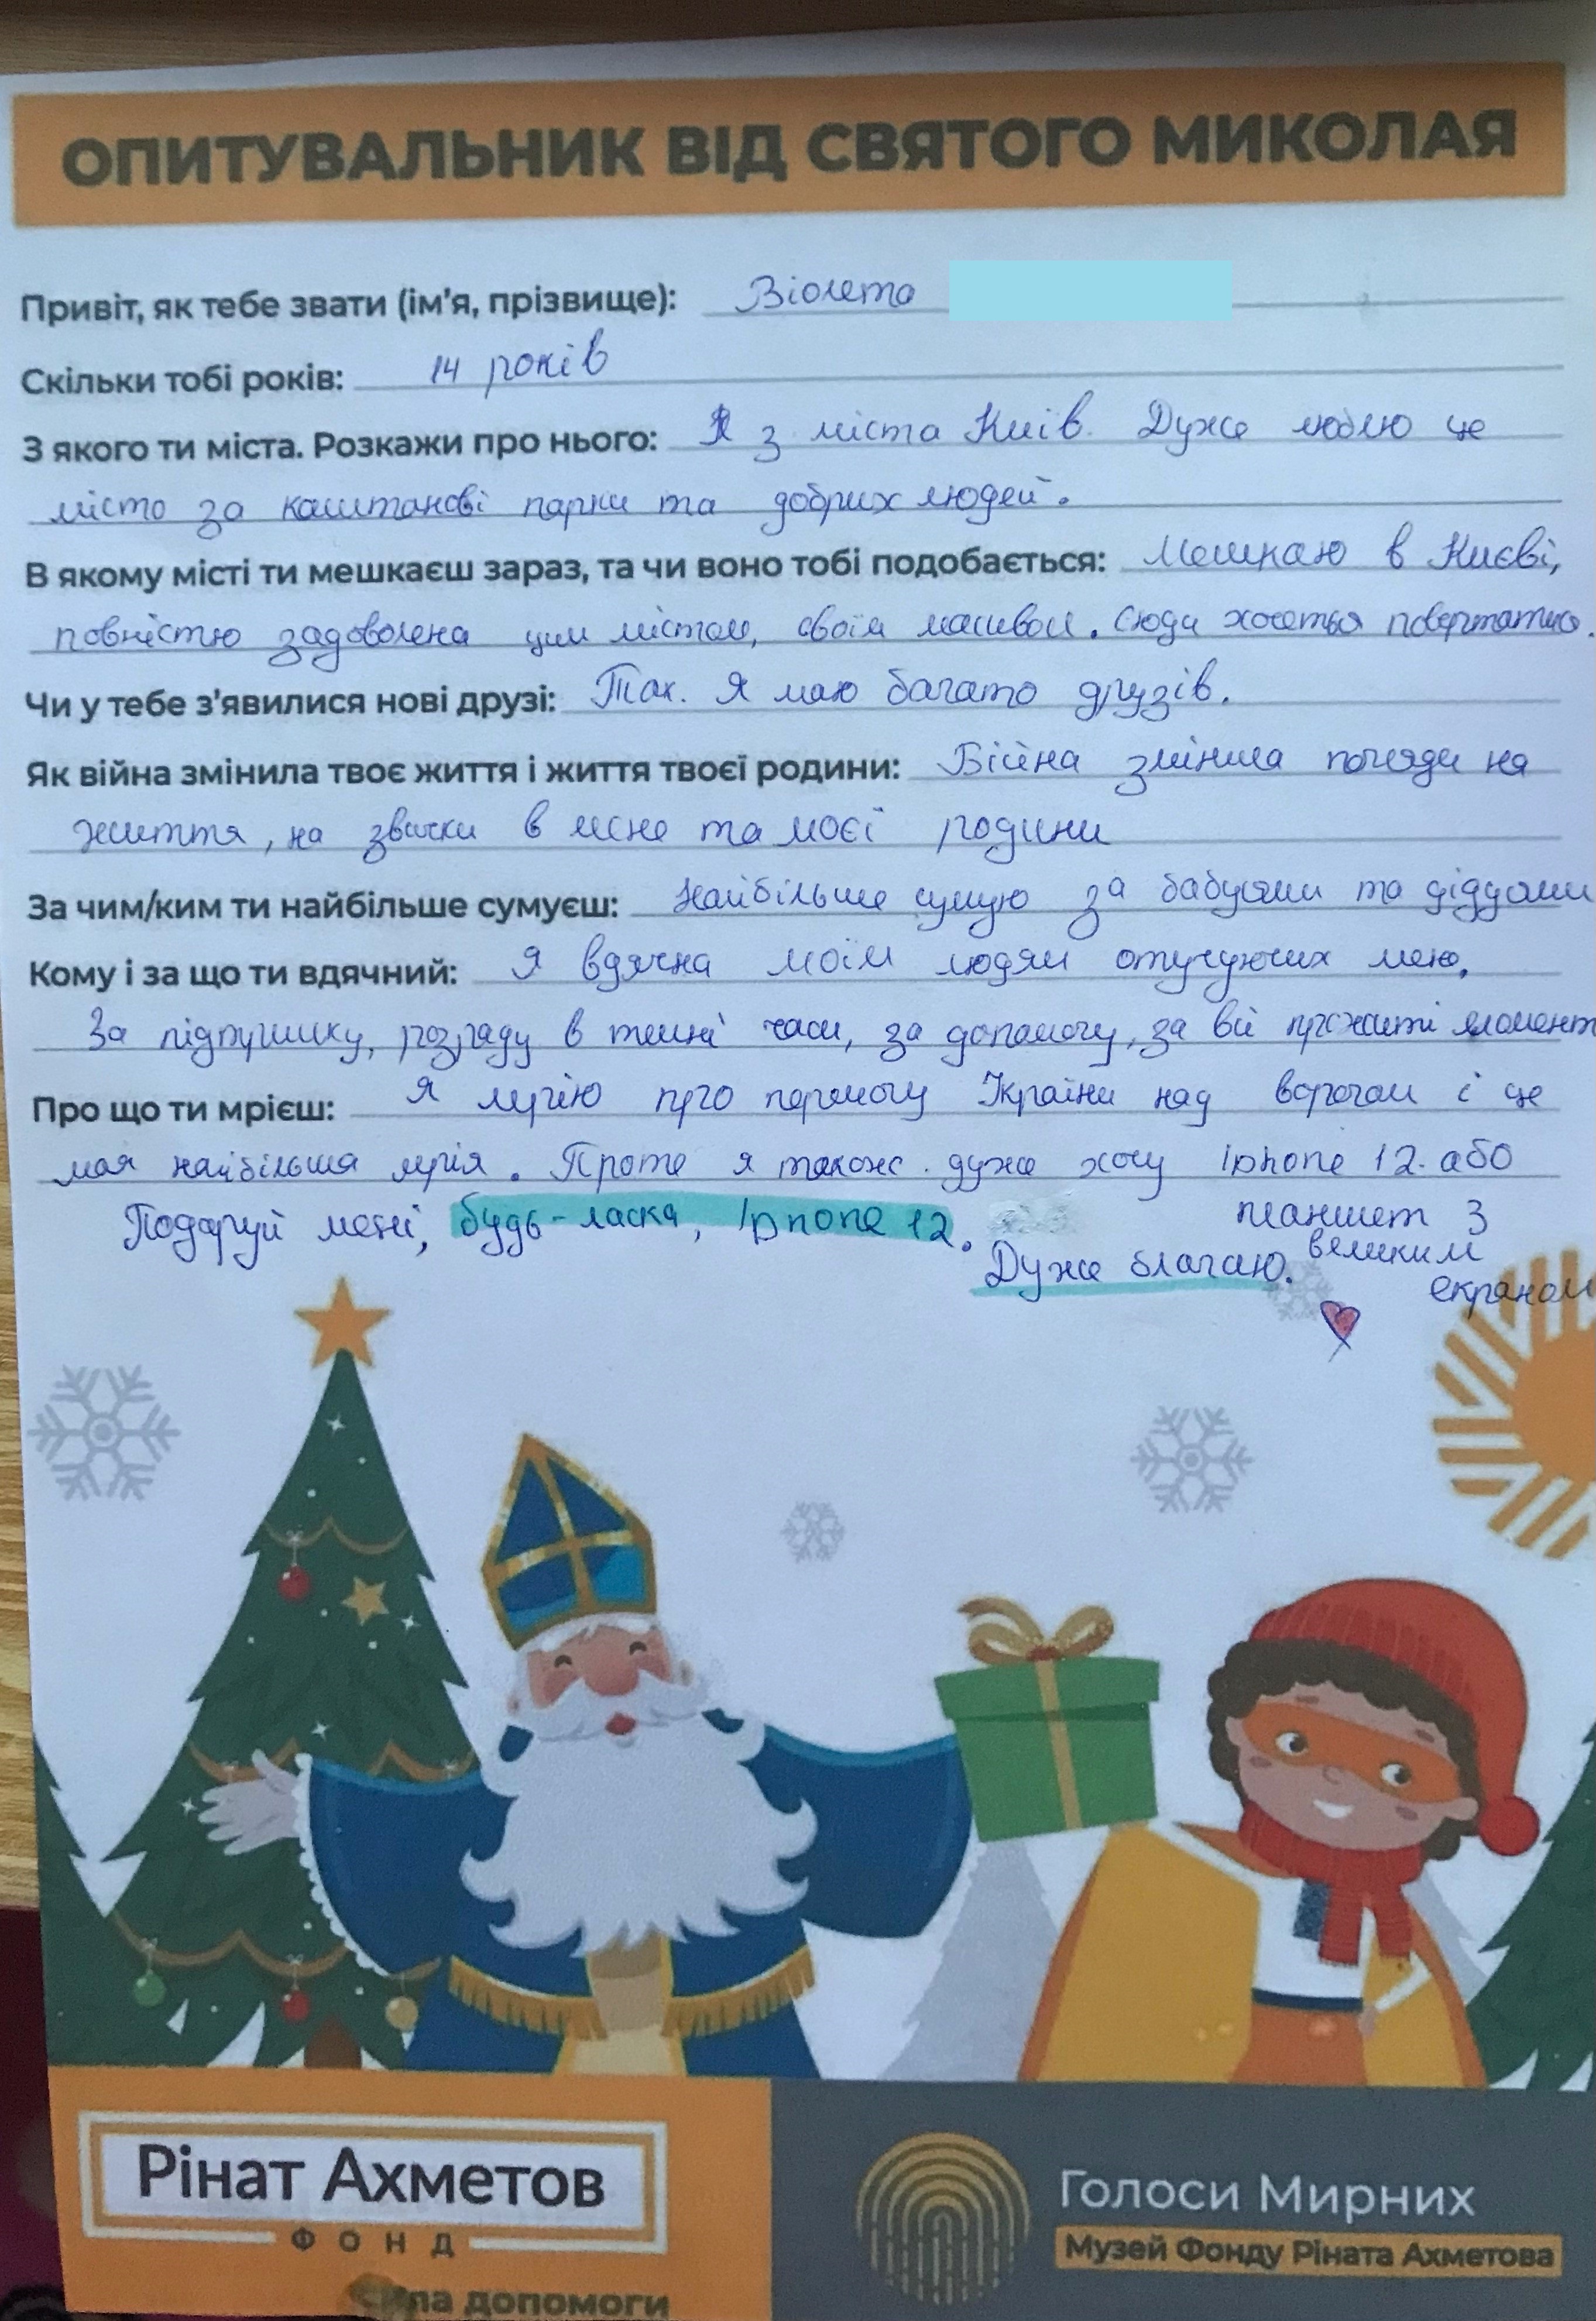 ОПИТУВАЛЬНИК ВІД СВЯТОГО МИКОЛАЯ
Привіт, як тебе звати (ім'я, прізвище): Віолета
Скільки тобі років: 14 років
З якого ти міста. Розкажи про нього: Я з міста Київ. Дуже люблю це
місто за каштанові парки та добрих людей.
В якому місті ти мешкаєш зараз, та чи воно тобі подобається: Мешкаю в Києві,
повністю задоволена цим містом, своїм масивом. Сюди хочеться повертатись.
Чи у тебе з'явилися нові друзі: Так. Я маю багато друзів.
Як війна змінила твоє життя і життя твоєї родини: Війна змінила погляди на
життя, на звички в мене та моєї родини
За чим/ким ти найбільше сумуєш: Найбільше сумую за бабусями та дідусями
Кому і за що ти вдячний: Я вдячна моїм людям отучуючих мене,
За підтримку, розраду в темні часи, за допомогу, за всі прожиті момент
Про що ти мрієш: Я мрію про перемогу України над ворогом і це
моя найбільша мрія. Проте я також дуже хочу iphone 12. або
Подаруй мені, будь-ласка, Iphone 12. планшет з
Дуже благаю. великим
екраном
Рінат Ахметов
ФОНД
Сила допомоги
Голоси Мирних
Музей Фонду Ріната Ахметова